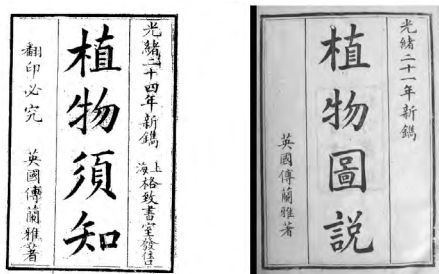 光緒二十四年新鐫
上海格致書室發售
植物須知
翻印必究
英國傅蘭雅著
光緒二十一年新鐫
植物圖說
英國傅蘭雅著